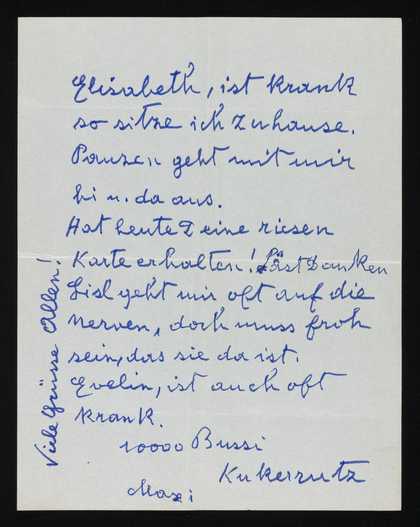 Elisabeth, ist krank
so sitze ich zuhause.
Panzen geht mit mir
hi u. da aus.
Hat heute Deine riesen
Karte erhalten! Läst Danken
Lisl geht mir oft auf die
nerven, doch muss froh
sein, das sie da ist.
Evelin, ist auch oft
krank.
10000 Bussi
Maxi
Viele Grüsse Allen!